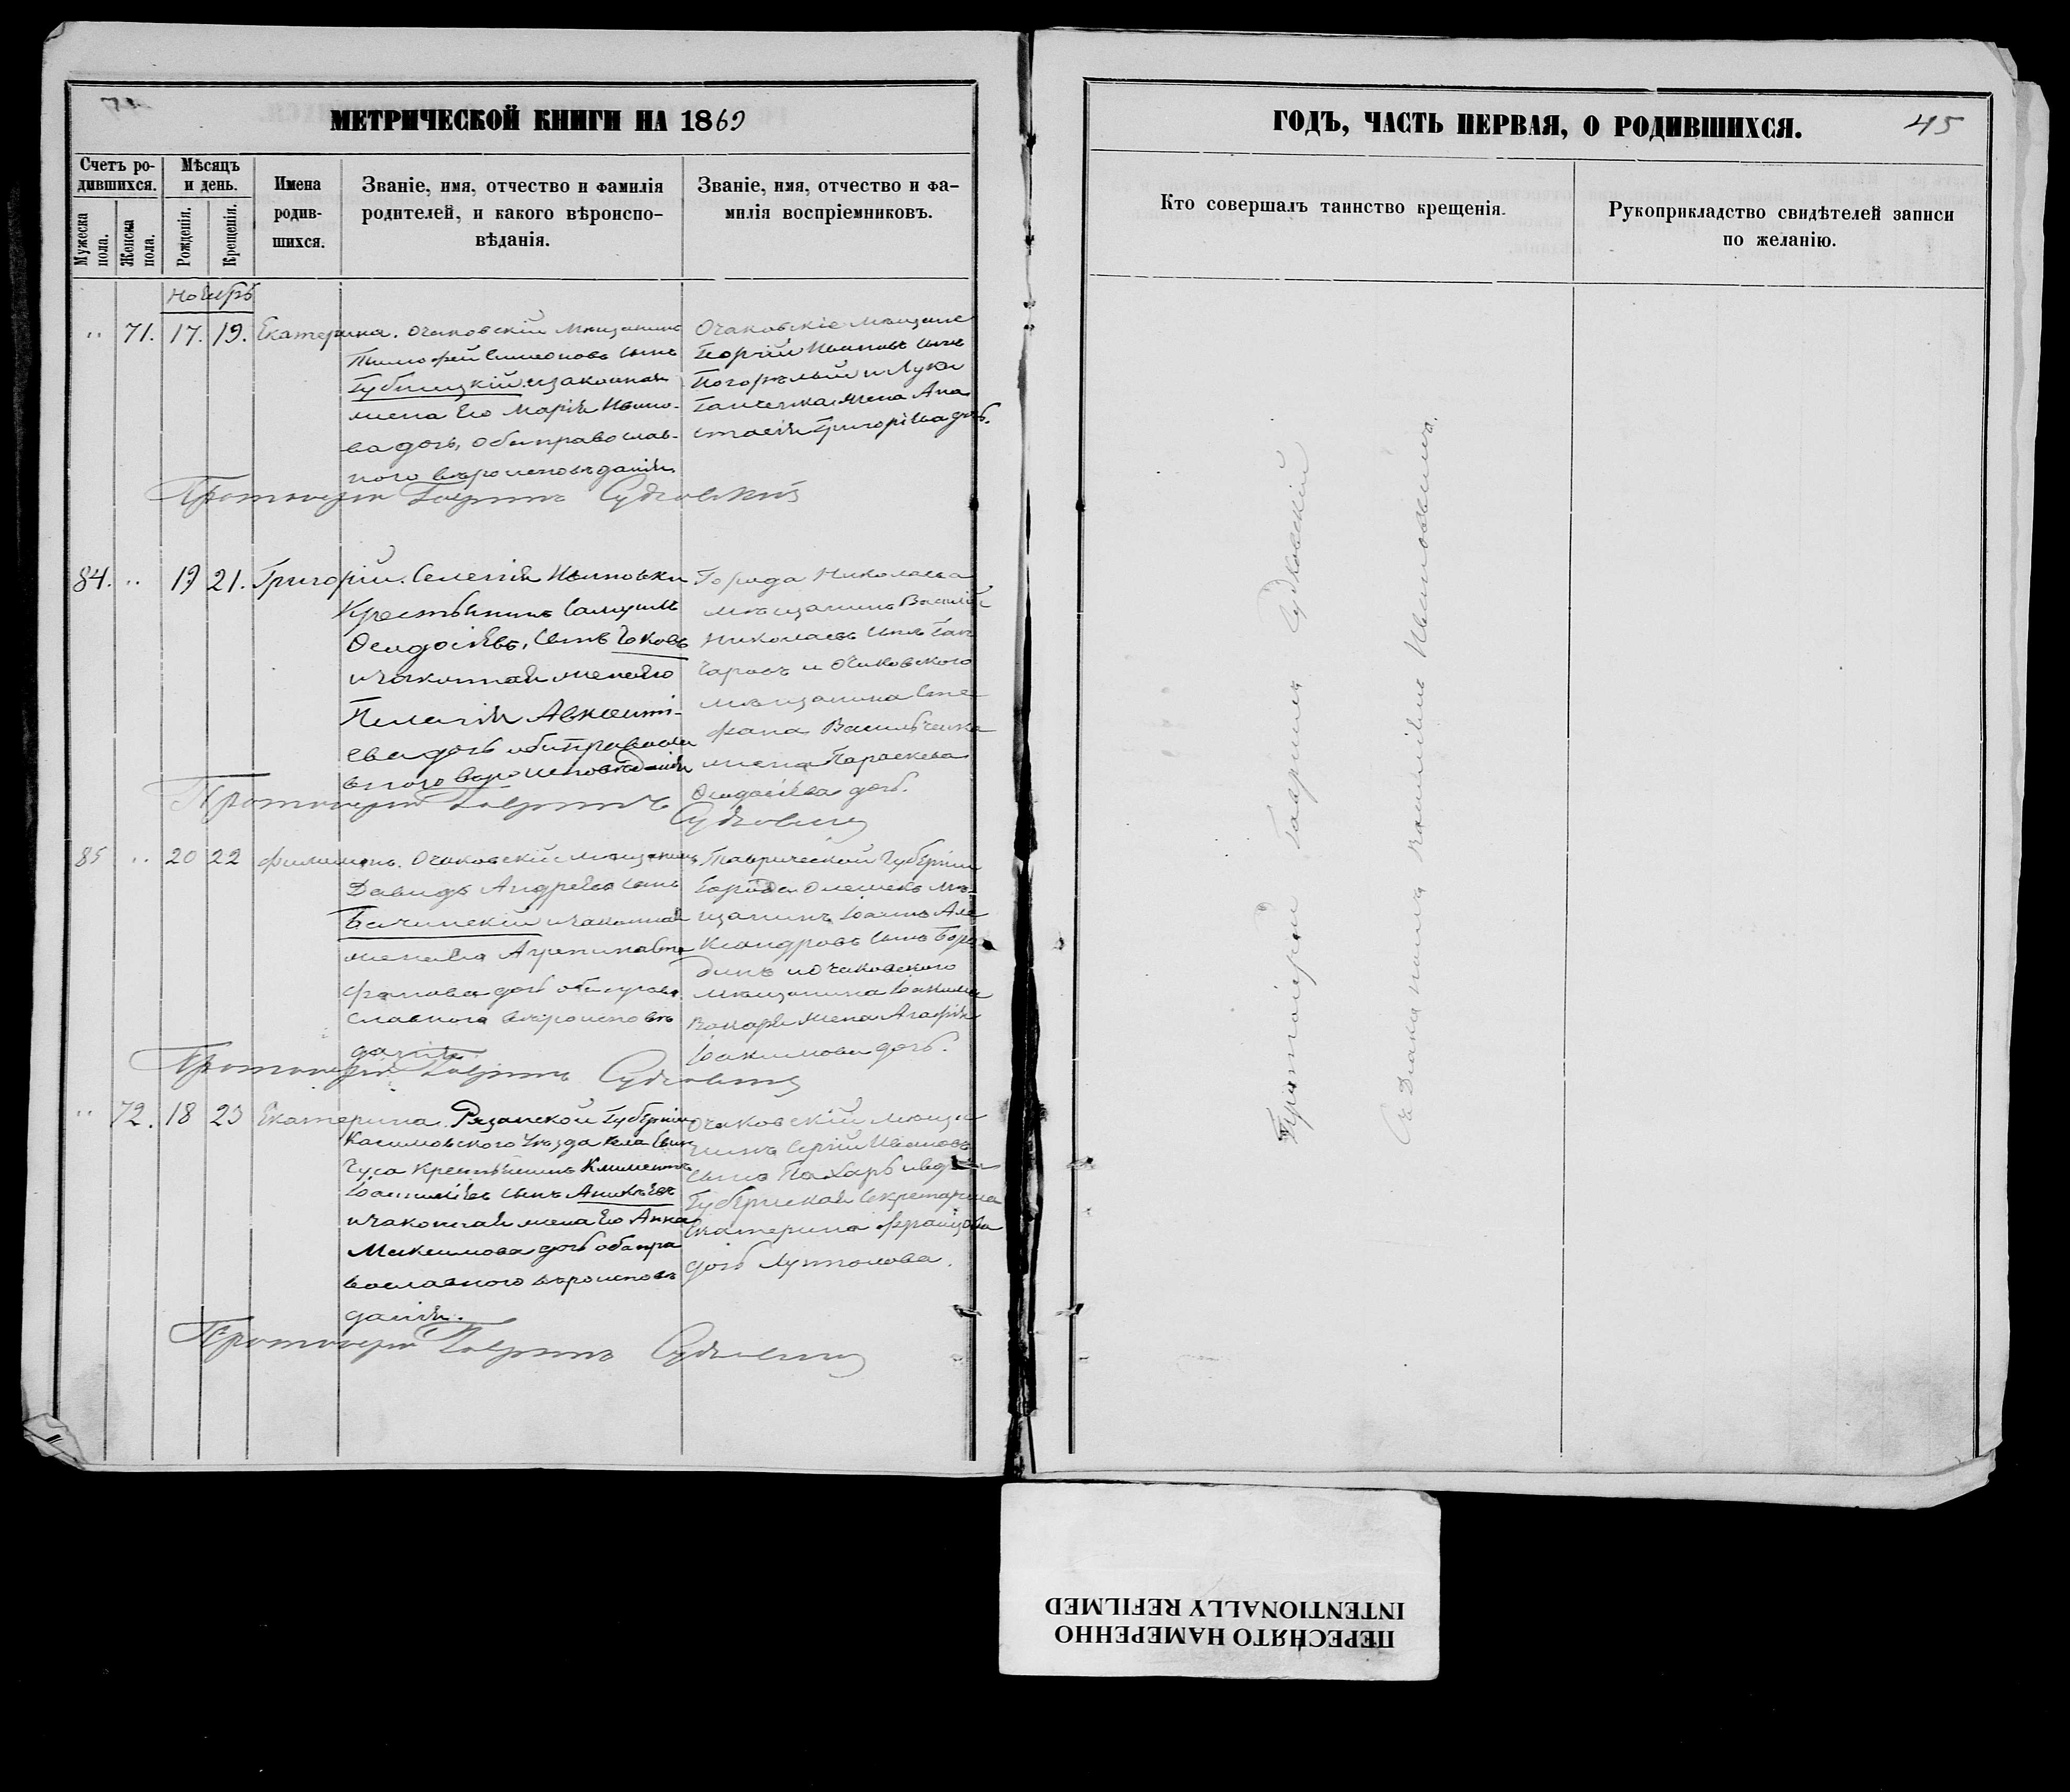 МЕТРИЧЕСКОЙ КНИГИ НА 1869
Счетъ ро-
дившихся.
Мужеска пола.
Женска пола.
Мѣсяцъ
и день.
Рожденія.
Крещенія.
Имена
родив-
шихся.
Званіе, имя, отчество и фамилія
родителей, и какого вѣроиспо-
вѣданія.
Званіе, имя, отчество и фа-
милія воспріемниковъ.
Ноябрь
71. 17. 19. Екатерина.
Очаковскій мѣщанинъ
Тимофей Симеоновъ сынъ
Губницкій и законная
жена его Марія Ивано-
ва дочь, оба православ-
ного вѣроисповѣданія
Очаковскіе мѣщане
Георгій Ивановъ сынъ
Погорѣлый и Луки
Ганченка жена Ана
стасія Григоріева дочь.
Протоіерей Гавріилъ Судковскій
84. 19 21. Григорій.
Селенія Ивановки
Крестьянинъ Самуилъ
Ѳеодосіевъ, сынъ
и законная жена его
Пелагія Авксенті-
ева дочь оба правосла
вного вѣроисповѣданія
Города Николаева
мѣщанинъ Василій
Николаевъ сынъ Ган
чаровъ и Очаковского
мѣщанина Сте
фана Васильченка
жена Параскева
Ѳеодосіева дочь.
Протоіерей Гавріилъ
Судковскій
85 20 22 Филимонъ.
Очаковскій мѣщанинъ
Давидъ Андреевъ сынъ
Бачинскій и законная
жена его Агрипина Сте
фанова дочь оба право
славного вѣроисповѣ
данія
Таврической Губерніи
города Олешекъ мѣ-
щанинъ Іоаннъ Але
ксандровъ сынъ Боро
динъ и Очаковского
мѣщанина Іоакима
жена Агафія
Іоакимова дочь.
Протоіерей Гавріилъ Судковскій
72. 18 23 Екатерина.
Рязанской Губерніи
Касимовского Уѣзда села
Гуса Крестьянинъ Климентъ
сынъ Аникѣевъ
и законная жена его Анна
Максимова дочь оба пра
вославного вѣроисповѣ
данія.
Очаковскій мѣща
нинъ Сергій Ивановъ
сынъ Пахарь и
Губернская Секретарша
Екатерина Францова
дочь Лутполова.
Протоіерей Гавріилъ Судковскій
ГОДЪ, ЧАСТЬ ПЕРВАЯ, О РОДИВШИХСЯ.
45
Кто совершалъ таинство крещенія.
Рукоприкладство свидѣтелей записи
по желанію.
Протоіерей Гавріилъ Судковскій
Съ Діакономъ Ивановымъ.
ПЕРЕСНЯТО НАМЕРЕННО
INTENTIONALLY REFILMED